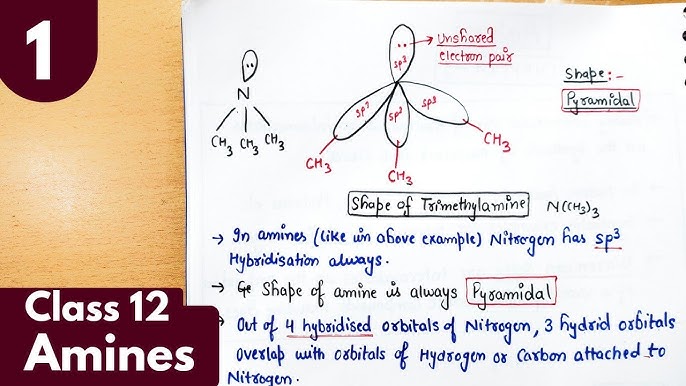 1
Class 12
Amines
N
CH3 CH3 CH3
sp3
Unshared
electron pair
sp3 sp3 sp3
CH3
CH3
CH3
Shape :-
Pyramidal
Shape of Trimethylamine N(CH3)3
→ In amines (like in above example) Nitrogen has sp3
Hybridisation always.
→ Shape of amine is always Pyramidal
→ Out of 4 hybridised orbitals of Nitrogen, 3 hydrid orbitals
overlap with orbitals of Hydrogen or Carbon attached to
Nitrogen.